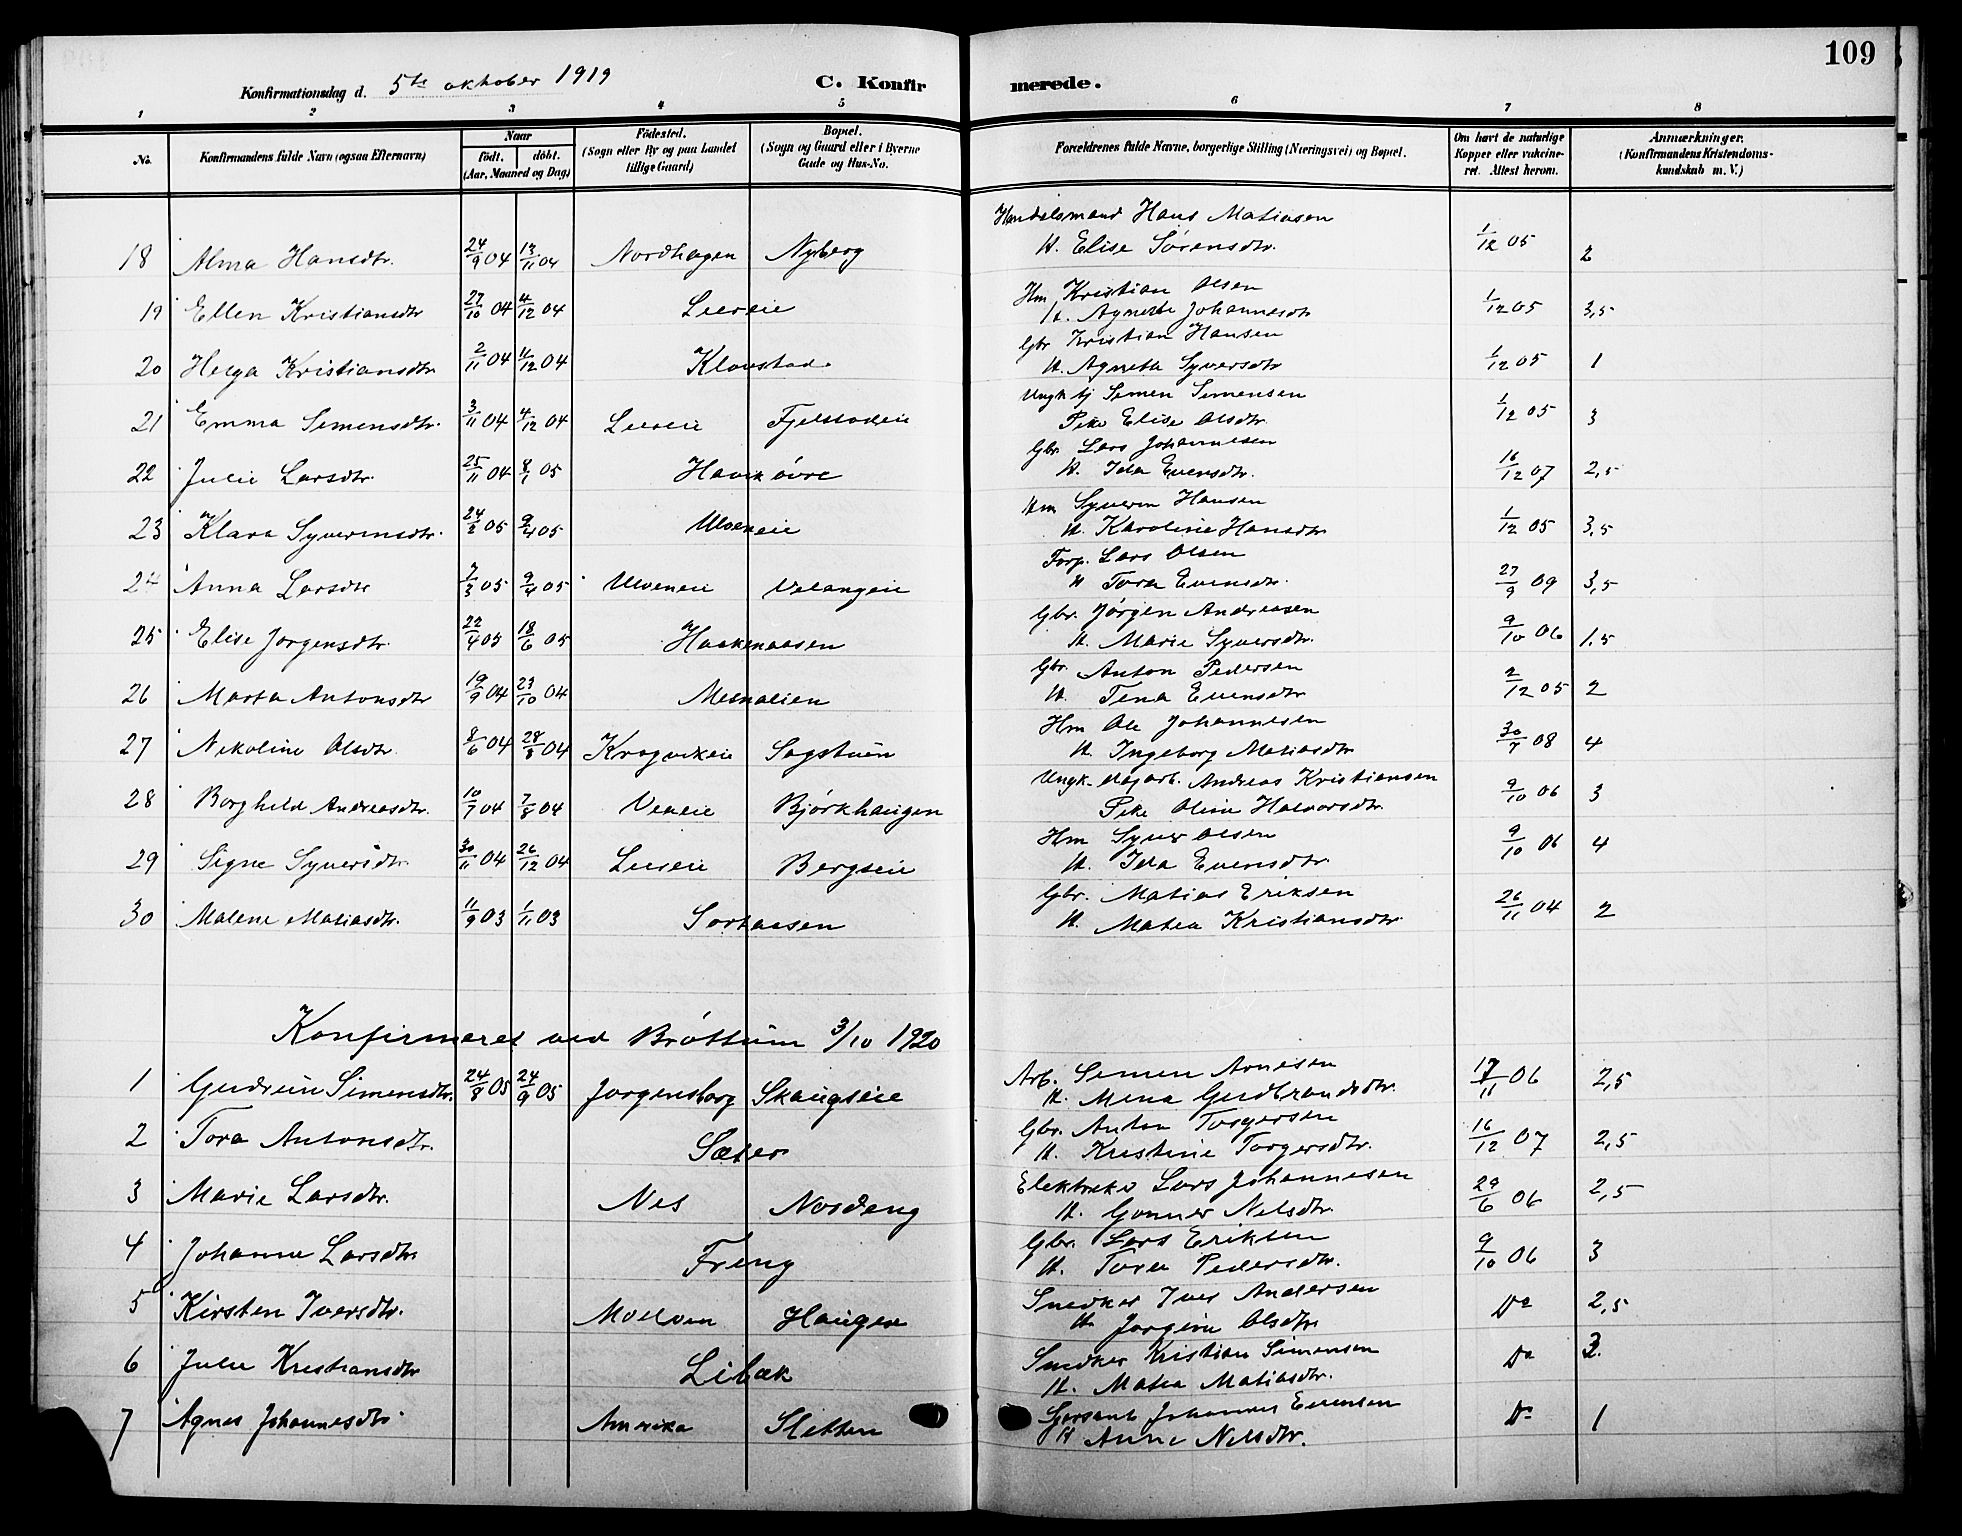 109
Konfirmationsdag d. 5te oktober 1919 C. Konfirmerede.
1 2 3 4 5 6 7 8
No. Konfirmandens fulde Navn (ogsaa Efternavn) Naar födt. döbt. (Aar, Maaned og Dag) Födested. (Sogn eller By og paa Landet tillige Gaard) Bopæl. (Sogn og Gaard eller i Byerne Gade og Hus-No. Forældrenes fulde Navne, borgerlige Stilling (Næringsvei) og Bopæl. Om havt de naturlige Kopper eller vakcineret. Attest herom. Anmærkninger, (Konfirmandens Kristendomskundskab m. V.)
Handelsmand Hans Matiasen
18 Alma Hansdtr. 24/9 04 13/11 04 Nordhagen Nyberg H. Elise Sørensdtr. 1/12 05 2
Hm Kristian Olsen
19 Ellen Kristiansdtr 27/10 04 4/12 04 Liereie H. Agnethe Johannesdtr 1/12 05 3,5
Gbr Kristian Hansen
20 Helga Kristiansdtr 2/11 04 4/12 04 Klovstad H. Agnethe Syversdtr 1/12 05 1
Ungk tj Simen Simensen
21 Emma Simensdtr. 3/11 04 4/12 04 Liereie Fjelstadeie Pike Elise Olsdtr. 1/12 05 3
Gbr. Lars Johannesen
22 Julie Larsdtr. 25/11 04 8/1 05 Havik övre H. Ida Evensdtr. 16/12 07 2,5
Hm Syverin Hansen
23 Klara Syverinsdtr. 24/2 05 9/4 05 Ulveneie H. Karoline Hansdtr 1/12 05 3,5
Forp. Lars Olsen
24 Anna Larsdtr 7/3 05 9/4 05 Ulveneie Velangeie H Tora Evensdtr. 27/9 09 3,5
Gbr. Jørgen Andreasen
25 Elise Jorgensdtr. 22/4 05 18/6 05 Haakenaasen H. Marie Syversdtr. 9/10 06 1,5
Gbr. Anton Pedersen
26 Marta Antonsdtr 19/9 04 23/10 04 Mesnalien H. Tina Evensdtr 2/12 05 2
Hm Ole Johannesen
27 Nikoline Olsdtr. 8/6 04 28/8 04 Kragvikeie Sagstuen H. Ingeborg Matiasdtr 30/7 08 4
Ungk. dagarb. Andreas Kristiansen
28 Borghild Andreasdtr. 10/7 04 7/8 04 Veneie Bjørkhaugen Pike Oline Halvorsdtr. 9/10 06 3
Hm Syver Olsen
29 Signe Syversdtr. 30/11 04 26/12 04 Liereie Bergseie H. Ida Evensdtr. 9/10 06 4
Gbr. Matias Eriksen
30 Malene Matiasdtr. 11/9 03 1/11 03 Sorhaasen H. Matea Kristiansdtr 26/11 04 2
Konfirmeret ved Bröttum 3/10 1920
Arb. Simen Arnesen
1 Gudrun Simensdtr. 24/8 05 24/9 05 Jorgensborg Skaugseie H. Mina Gudbrandsdtr. 17/11 06 2,5
Gbr. Anton Torgersen
2 Tora Antonsdtr. Sæter H. Kristine Torgersdtr. 16/12 07 2,5
Elektrike Lars Johannesen
3 Marie Larsdtr. Nes Nordeng H. Gonner Nilsdtr. 29/6 06 2,5
Gbr. Lars Eriksen
4 Johanne Larsdtr Freng H. Tora Pedersdtr. 9/10 06 3
Snedker Iver Andersen
5 Kirsten Iversdtr. Moelven Haugen H. Jorgine Olsdtr Do 2,5
Snedker Kristian Simensen
6 Julie Kristiansdtr Libæk H. Matea Matiasdtr. Do
Johannes Evensen
7 Agnes Johannesdtr Amerika Sletten H Anne Nilsdtr. Do 1